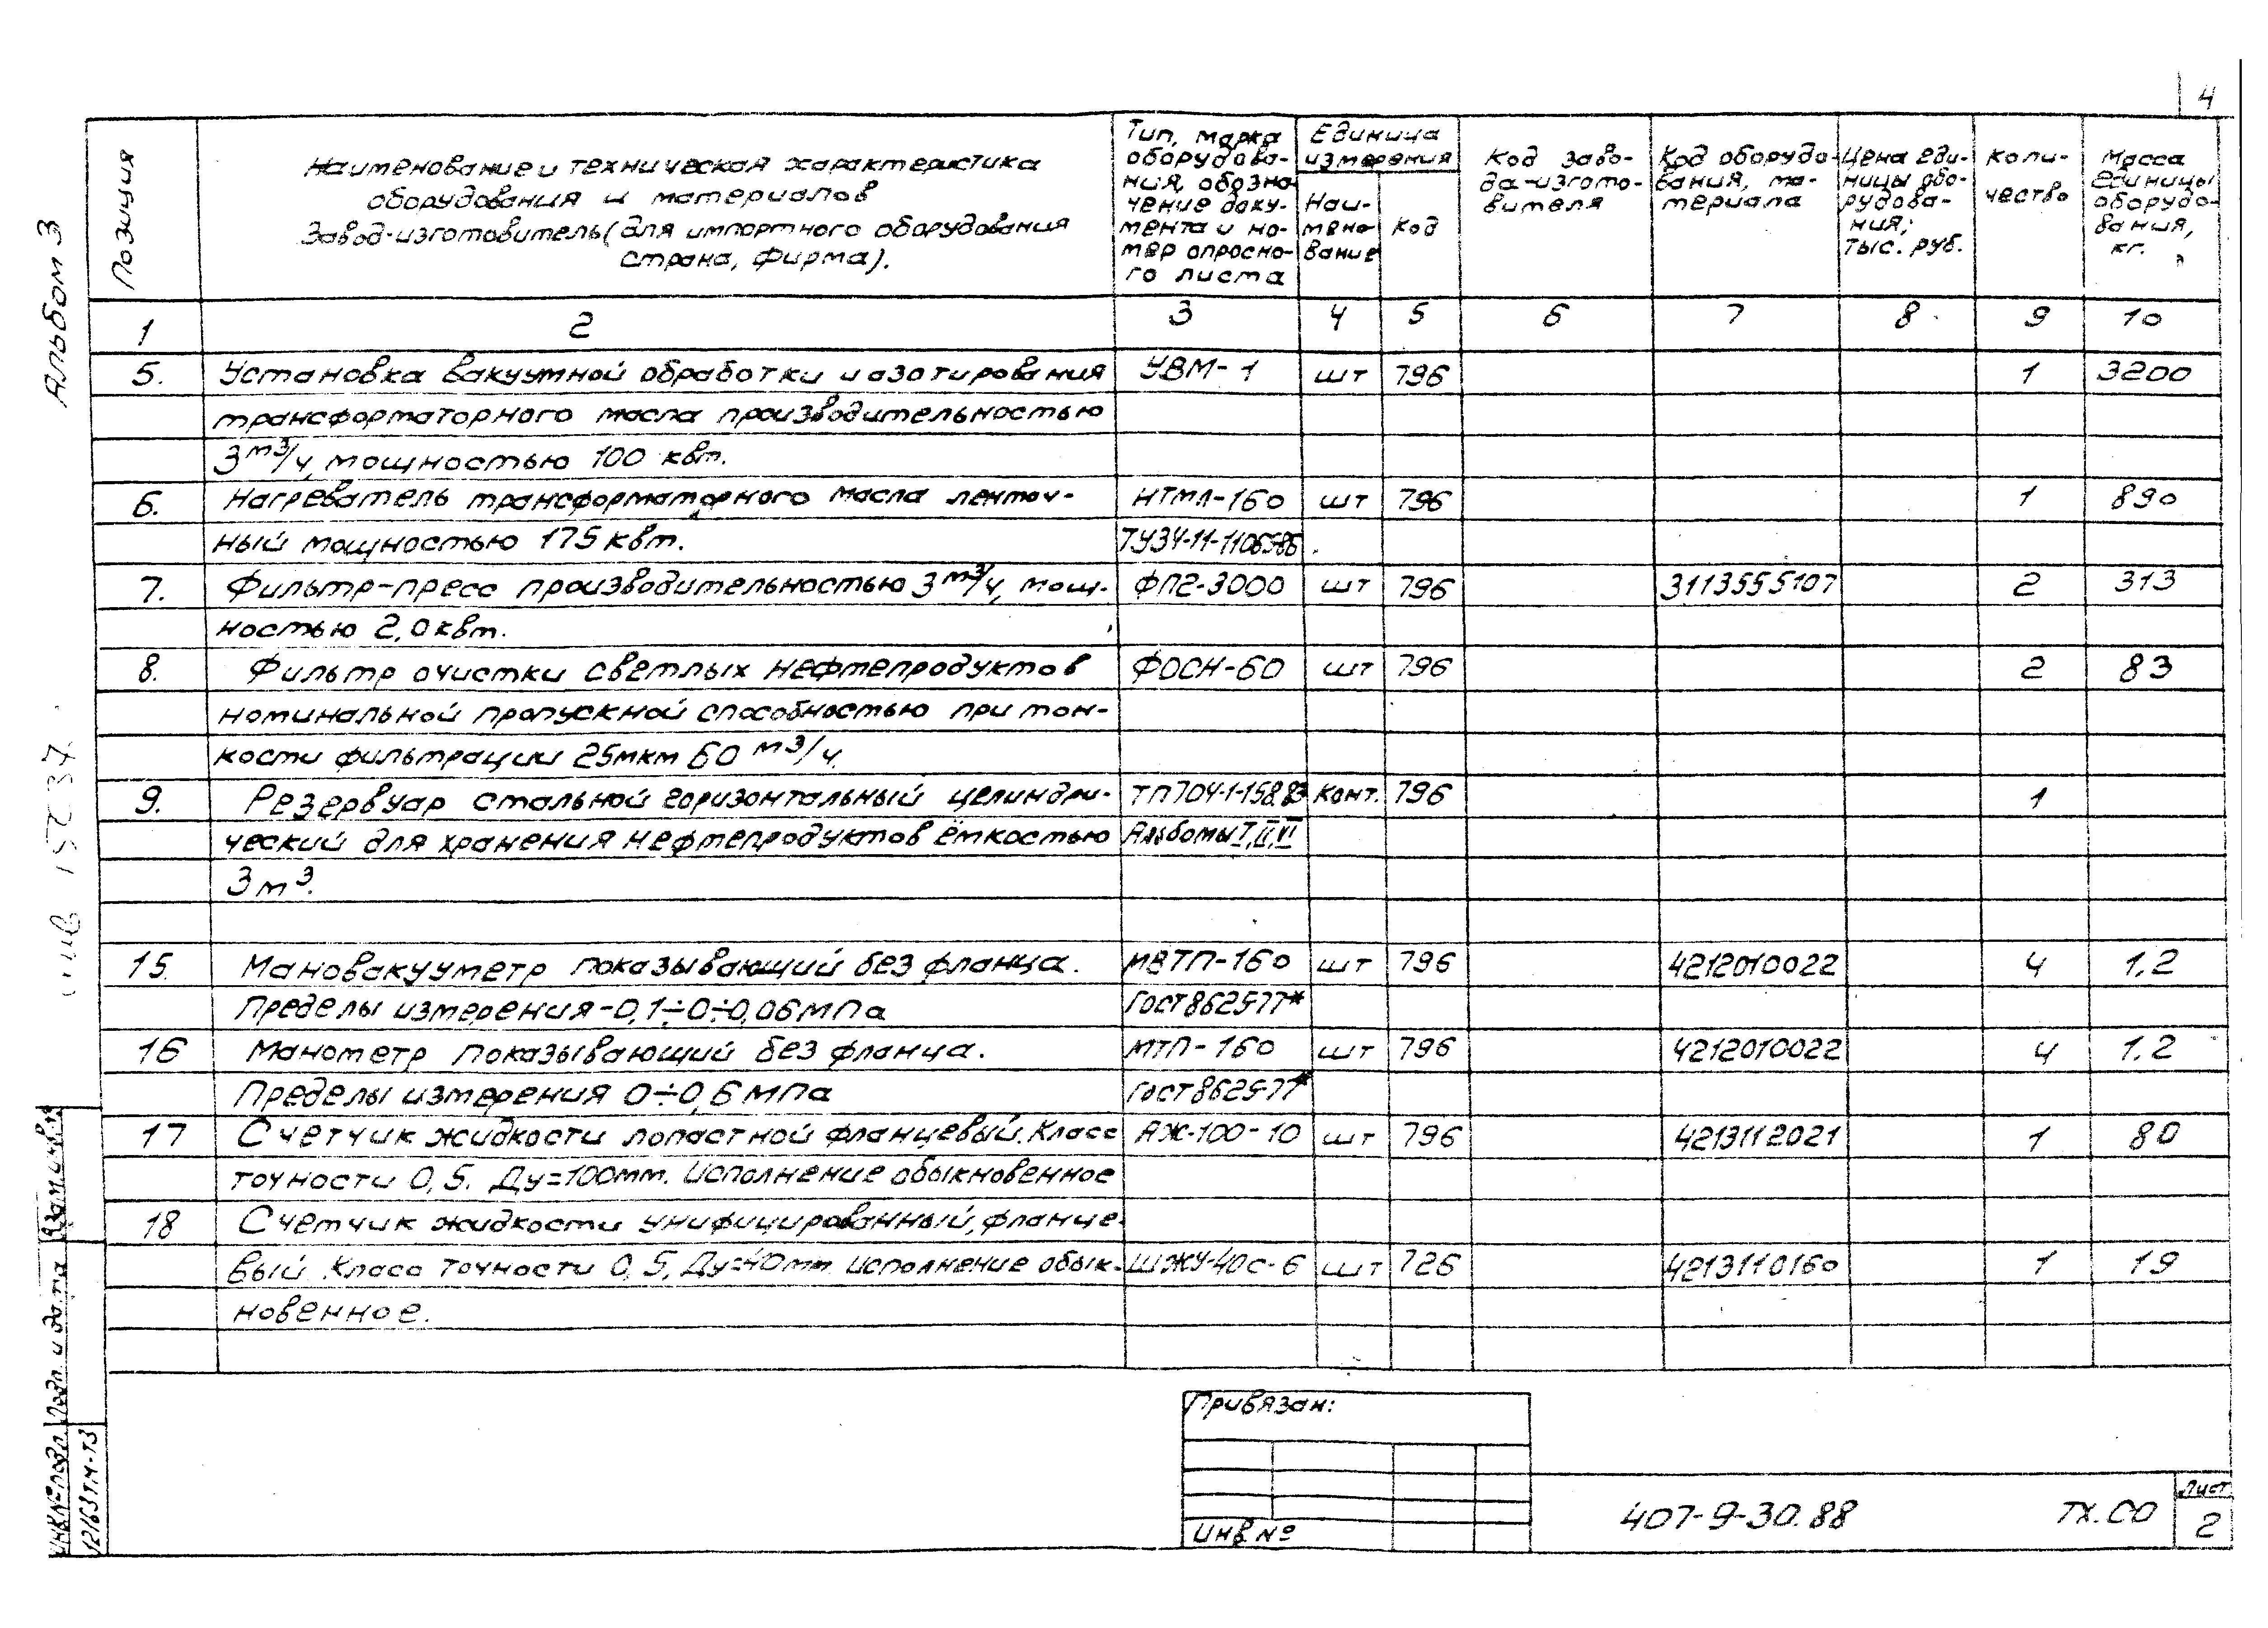 4
Альбом 3
Позиция
Наименование и техническая характеристика
оборудования и материалов
Завод-изготовитель (для импортного оборудования
страна, фирма).
Тип, марка
оборудова-
ния, обозна-
чение доку-
мента и но-
мер опросно-
го листа
Единица
измерения
Наи-
мено-
вание
Код
Код заво-
да-изгото-
вителя
Код оборудо-
вания, ма-
териала
Цена еди-
ницы обо-
рудова-
ния;
тыс. руб.
Коли-
чество
Масса
единицы
оборудо-
вания,
кг.
1 2 3 4 5 6 7 8 9 10
5. Установка вакуумной обработки и азотирования УВМ-1 шт 796 1 3200
трансформаторного масла производительностью
3 м3/ч, мощностью 100 квт.
6. Нагреватель трансформаторного масла ленточ- НТМЛ-160 шт 796 1 890
ный мощностью 175 квт. ТУ34-11-11065-86
7. Фильтр-пресс производительностью 3 м3/ч, мощ- ФП2-3000 шт 796 3113555107 2 313
ностью 2,0 квт.
8. Фильтр очистки светлых нефтепродуктов ФОСН-60 шт 796 2 83
номинальной пропускной способностью при тон-
кости фильтрации 25мкм 60 м3/ч.
9. Резервуар стальной горизонтальный целиндри- ТП704-1-158.83 Конт. 796 1
ческий для хранения нефтепродуктов ёмкостью Альбомы I, II, VI
3 м3.
15. Мановакууметр показывающий без фланца. МВТП-160 шт 796 4212010022 4 1,2
Пределы измерения -0,1÷0÷0,06 МПа Гост 8625-77*
16 Манометр показывающий без фланца. МТП-160 шт 796 4212010022 4 1,2
Пределы измерения 0÷0,6 МПа Гост 8625-77*
17 Счетчик жидкости лопастной фланцевый. Класс АЖ-100-10 шт 796 4213112021 1 80
точности 0,5. Ду=100мм. Исполнение обыкновенное
18 Счетчик жидкости унифицированный, фланце-
вый. Класс точности 0,5, Ду=40мм. Исполнение обык- ШЖУ-40с-6 шт 726 4213110160 1 19
новенное.
Взам.инв.№
Подп. и дата
Инв.№ подл.
12163тм-т3
Привязан:
Инв №
407-9-30.88 ТХ.СО
Лист
2